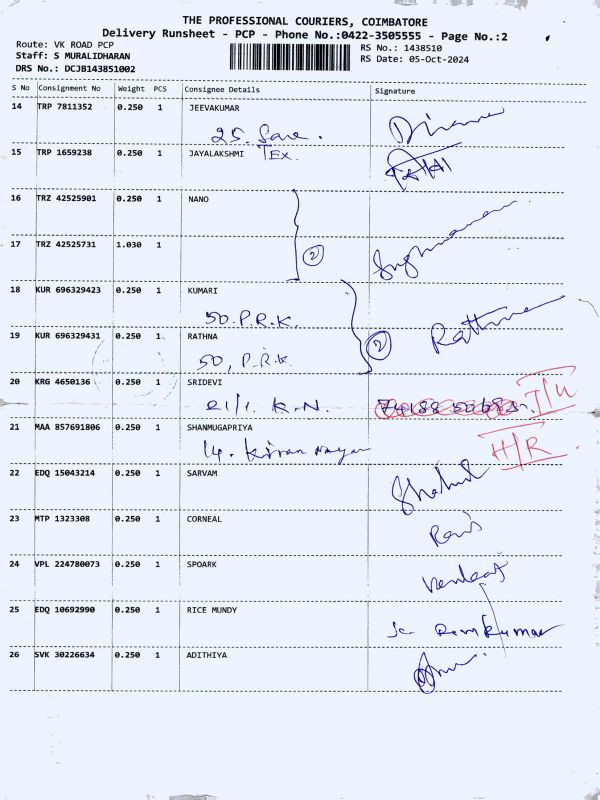 THE PROFESSIONAL COURIERS, COIMBATORE
Delivery Runsheet - PCP - Phone No.:0422-3505555 - Page No.:2
Route: VK ROAD PCP
Staff: S MURALIDHARAN
DRS No.: DCJB143851002
RS No.: 1438510
RS Date: 05-Oct-2024
S No Consignment No Weight PCS Consignee Details Signature
14 TRP 7811352 0.250 1 JEEVAKUMAR
25.
15 TRP 1659238 0.250 1 JAYALAKSHMI TEX.
16 TRZ 42525901 0.250 1 NANO
2
17 TRZ 42525731 1.030 1
18 KUR 696329423 0.250 1 KUMARI
50.P.R.K. Rathna
19 KUR 696329431 0.250 1 RATHNA 2
50, P.R.K
20 KRG 4650136 0.250 1 SRIDEVI
21/1. K.N.
21 MAA 857691806 0.250 1 SHANMUGAPRIYA H/R
14. Kiran nagar
22 EDQ 15043214 0.250 1 SARVAM
23 MTP 1323308 0.250 1 CORNEAL
24 VPL 224780073 0.250 1 SPOARK Venkat
25 EDQ 10692990 0.250 1 RICE MUNDY
Ramkumar
26 SVK 30226634 0.250 1 ADITHIYA